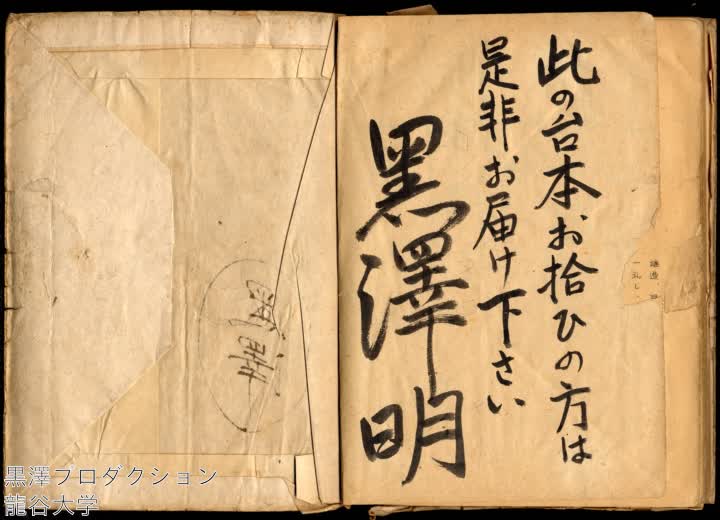 此の台本お拾ひの方は
是非お届け下さい
黒澤明
黒澤プロダクション
龍谷大学